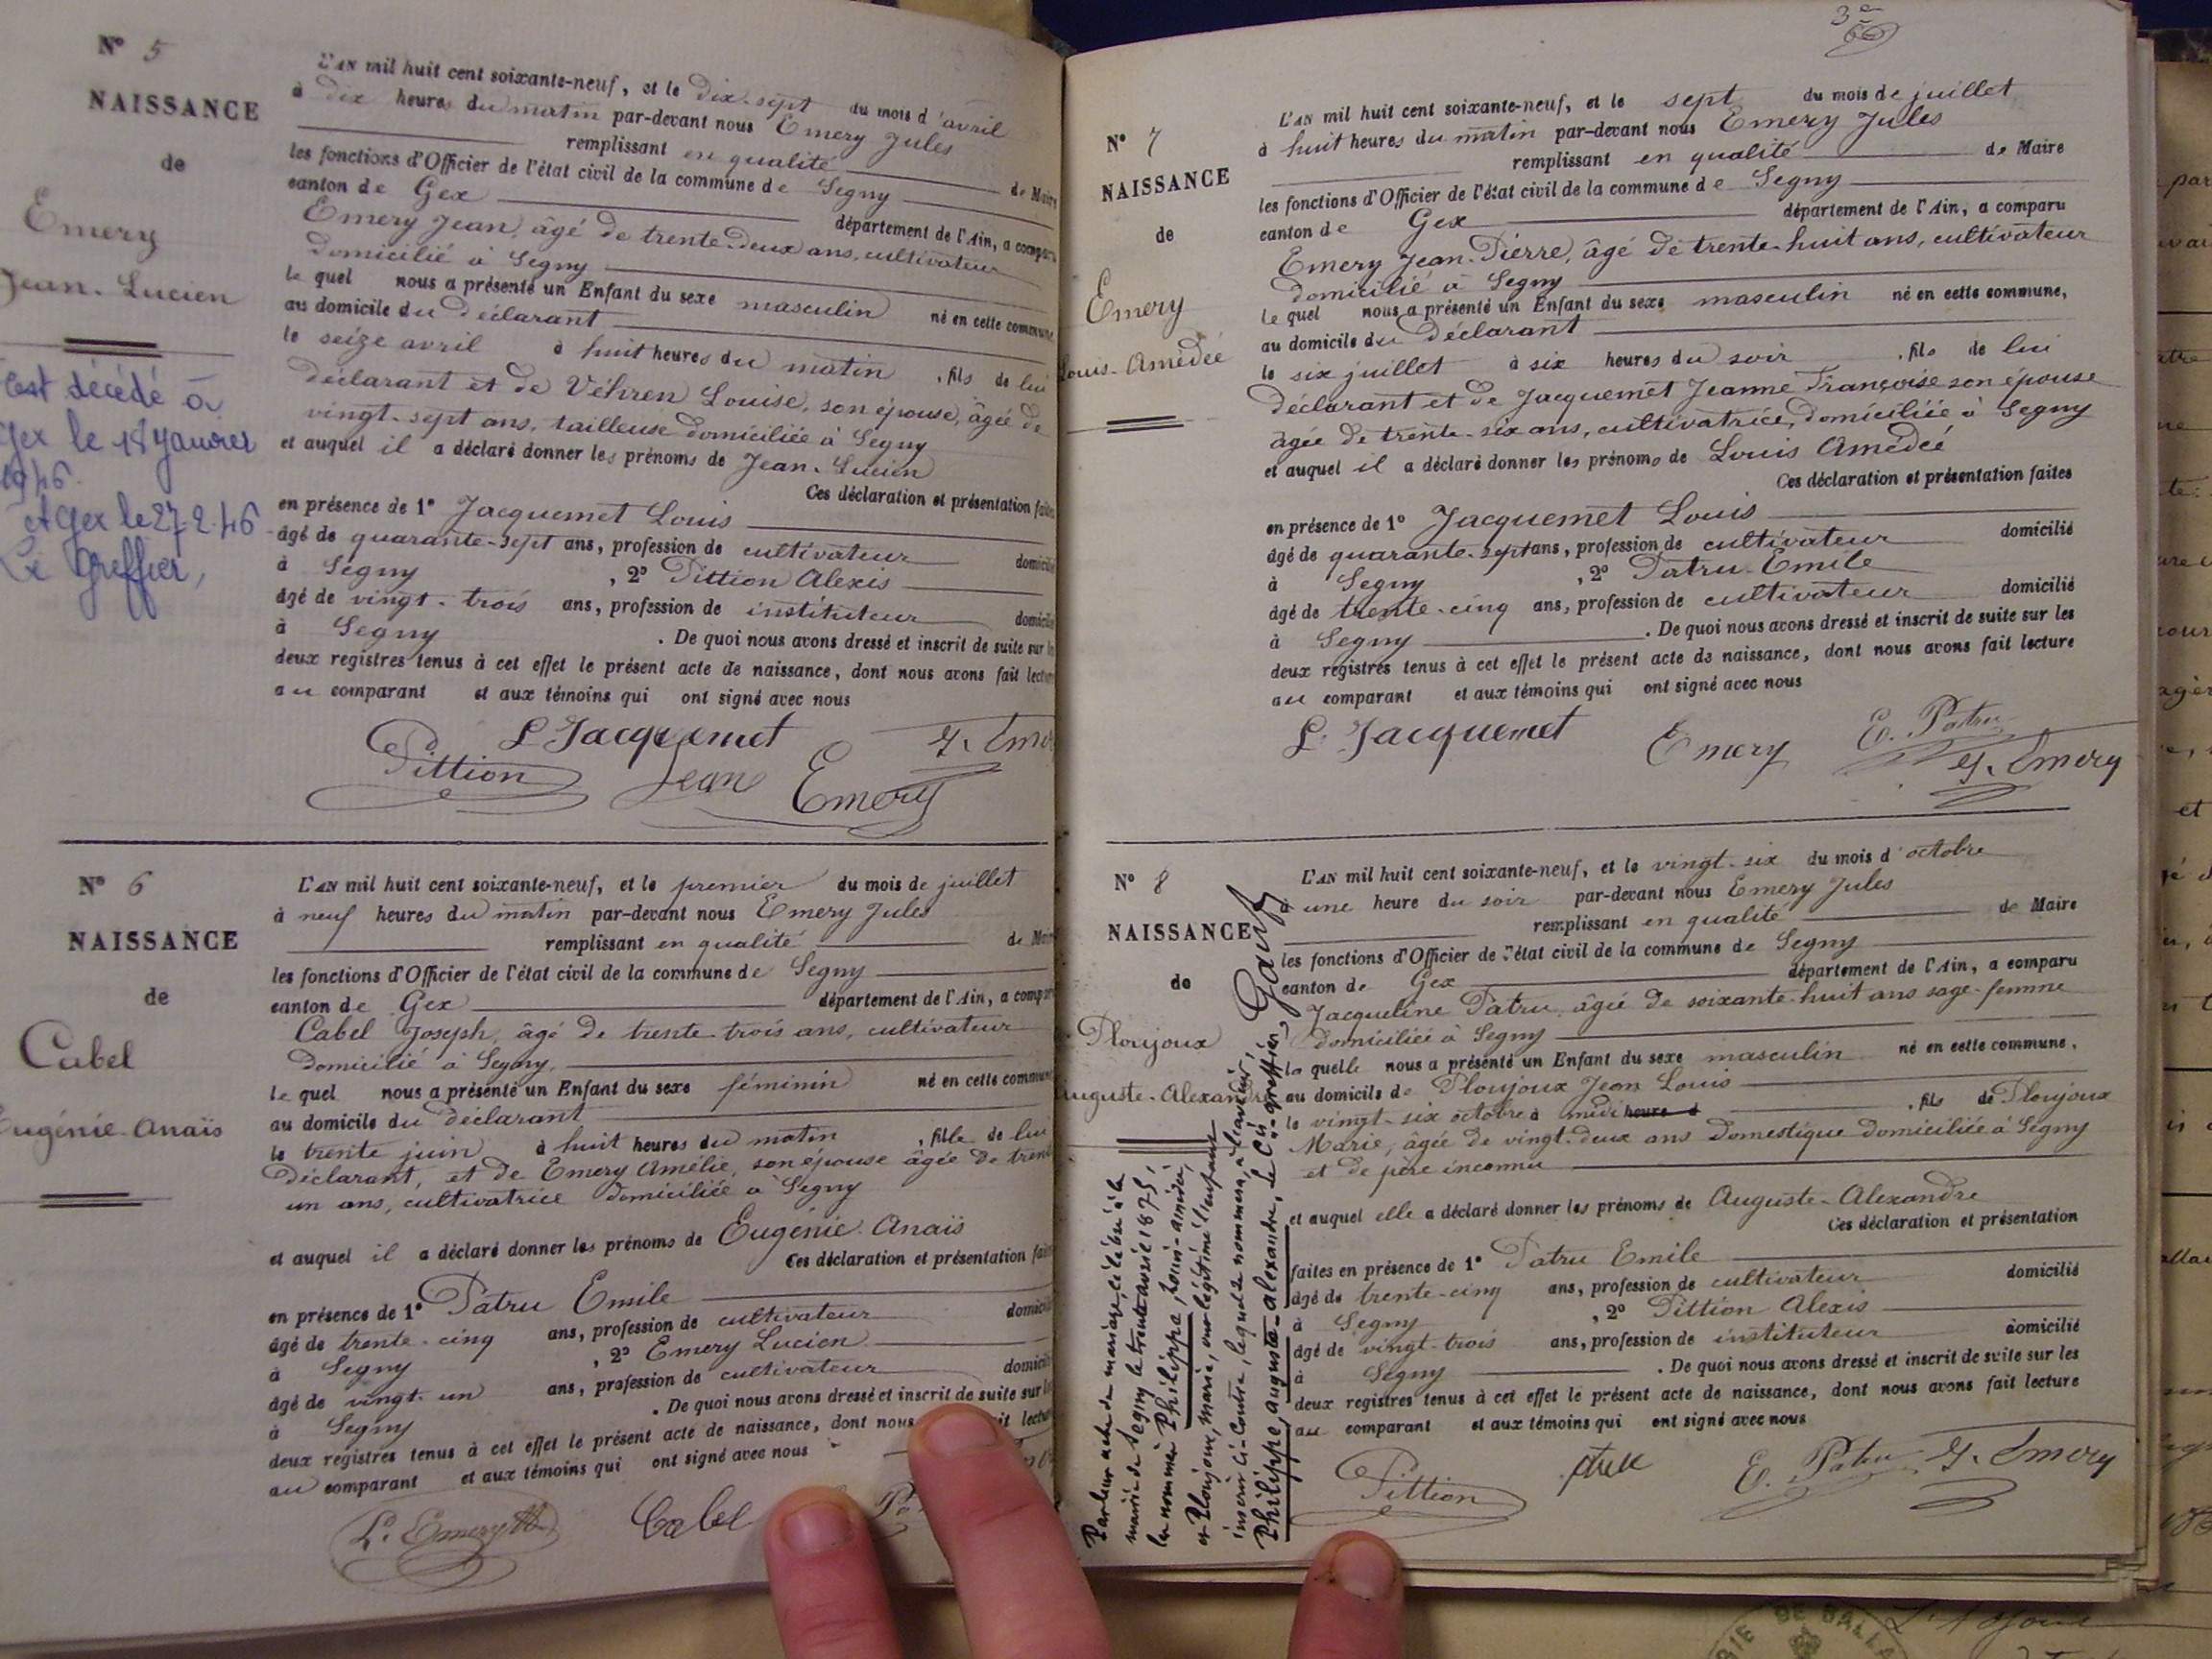 N° 5
NAISSANCE
de
Emery
Jean-Lucien
Est décédé à
Gex le 18 janvier
1946.
A Gex le 27-2-46
Le Greffier,
L'AN mil huit cent soixante-neuf, et le dix-sept du mois d'avril
à dix heures du matin par-devant nous Emery Jules
remplissant en qualité de Maire
les fonctions d'Officier de l'état civil de la commune de Segny
canton de Gex département de l'Ain, a comparu
Emery Jean, âgé de trente-deux ans, cultivateur
domicilié à Segny
lequel nous a présenté un Enfant du sexe masculin né en cette commune
au domicile du déclarant
le seize avril à huit heures du matin, fils de lui
déclarant et de Véhren Louise, son épouse, âgée de
vingt-sept ans, tailleuse domiciliée à Segny
et auquel il a déclaré donner les prénoms de Jean-Lucien
Ces déclaration et présentation faites
en présence de 1° Jacquemet Louis
âgé de quarante-sept ans, profession de cultivateur domicilié
à Segny, 2° Pittion Alexis
âgé de vingt-trois ans, profession de instituteur domicilié
à Segny. De quoi nous avons dressé et inscrit de suite sur les
deux registres tenus à cet effet le présent acte de naissance, dont nous avons fait lecture
au comparant et aux témoins qui ont signé avec nous
L. Jacquemet
Pittion Jean Emery
N° 6
NAISSANCE
de
Cabel
Eugénie-Anaïs
L'AN mil huit cent soixante-neuf, et le premier du mois de juillet
à neuf heures du matin par-devant nous Emery Jules
remplissant en qualité de Maire
les fonctions d'Officier de l'état civil de la commune de Segny
canton de Gex département de l'Ain, a comparu
Cabel Joseph, âgé de trente-trois ans, cultivateur
domicilié à Segny,
lequel nous a présenté un Enfant du sexe féminin né en cette commune
au domicile du déclarant
le trente juin à huit heures du matin, fille de lui
déclarant, et de Emery Amélie, son épouse âgée de trente
un ans, cultivatrice domiciliée à Segny
et auquel il a déclaré donner les prénoms de Eugénie Anaïs
Ces déclaration et présentation faites
en présence de 1° Patru Emile
âgé de trente-cinq ans, profession de cultivateur domicilié
à Segny, 2° Emery Lucien
âgé de vingt-un ans, profession de cultivateur domicilié
à Segny. De quoi nous avons dressé et inscrit de suite sur les
deux registres tenus à cet effet le présent acte de naissance, dont nous fait lecture
au comparant et aux témoins qui ont signé avec nous
L. Emery Cabel
3e
N° 7
NAISSANCE
de
Emery
Louis-Amédée
L'AN mil huit cent soixante-neuf, et le sept du mois de juillet
à huit heures du matin par-devant nous Emery Jules
remplissant en qualité de Maire
les fonctions d'Officier de l'état civil de la commune de Segny
canton de Gex département de l'Ain, a comparu
Emery Jean-Pierre, âgé de trente-huit ans, cultivateur
domicilié à Segny
lequel nous a présenté un Enfant du sexe masculin né en cette commune,
au domicile du déclarant
le six juillet à six heures du soir, fils de lui
déclarant et de Jacquemet Jeanne Françoise son épouse
âgée de trente-six ans, cultivatrice, domiciliée à Segny
et auquel il a déclaré donner les prénoms de Louis Amédée
Ces déclaration et présentation faites
en présence de 1° Jacquemet Louis
âgé de quarante-sept ans, profession de cultivateur domicilié
à Segny, 2° Patru Emile
âgé de trente-cinq ans, profession de cultivateur domicilié
à Segny. De quoi nous avons dressé et inscrit de suite sur les
deux registres tenus à cet effet le présent acte de naissance, dont nous avons fait lecture
au comparant et aux témoins qui ont signé avec nous
L. Jacquemet Emery E. Patru
J. Emery
N° 8
NAISSANCE
de
Ploujoux
Auguste-Alexandre
Par leur acte de mariage, célébré à la
mairie de Segny le trente avril 1875,
les nommés Philippe, Louis-
et Ploujoux, Marie, ont légitimé l'enfant
inscrit ci-contre, lequel se nommera, à l'avenir,
Philippe, auguste-alexandre, le Cis-greffier,
L'AN mil huit cent soixante-neuf, et le vingt-six du mois d'octobre
à une heure du soir par-devant nous Emery Jules
remplissant en qualité de Maire
les fonctions d'Officier de l'état civil de la commune de Segny
canton de Gex département de l'Ain, a comparu
Jacqueline Patru, âgée de soixante-huit ans sage-femme
domiciliée à Segny
laquelle nous a présenté un Enfant du sexe masculin né en cette commune,
au domicile de Ploujoux Jean Louis
le vingt-six octobre à midi heure d, fils de Ploujoux
Marie, âgée de vingt-deux ans domestique domiciliée à Segny
et de père inconnu
et auquel elle a déclaré donner les prénoms de Auguste-Alexandre
Ces déclaration et présentation
faites en présence de 1° Patru Emile
âgé de trente-cinq ans, profession de cultivateur domicilié
à Segny, 2° Pittion Alexis
âgé de vingt-trois ans, profession de instituteur domicilié
à Segny. De quoi nous avons dressé et inscrit de suite sur les
deux registres tenus à cet effet le présent acte de naissance, dont nous avons fait lecture
au comparant et aux témoins qui ont signé avec nous
Pittion E. Patru J. Emery